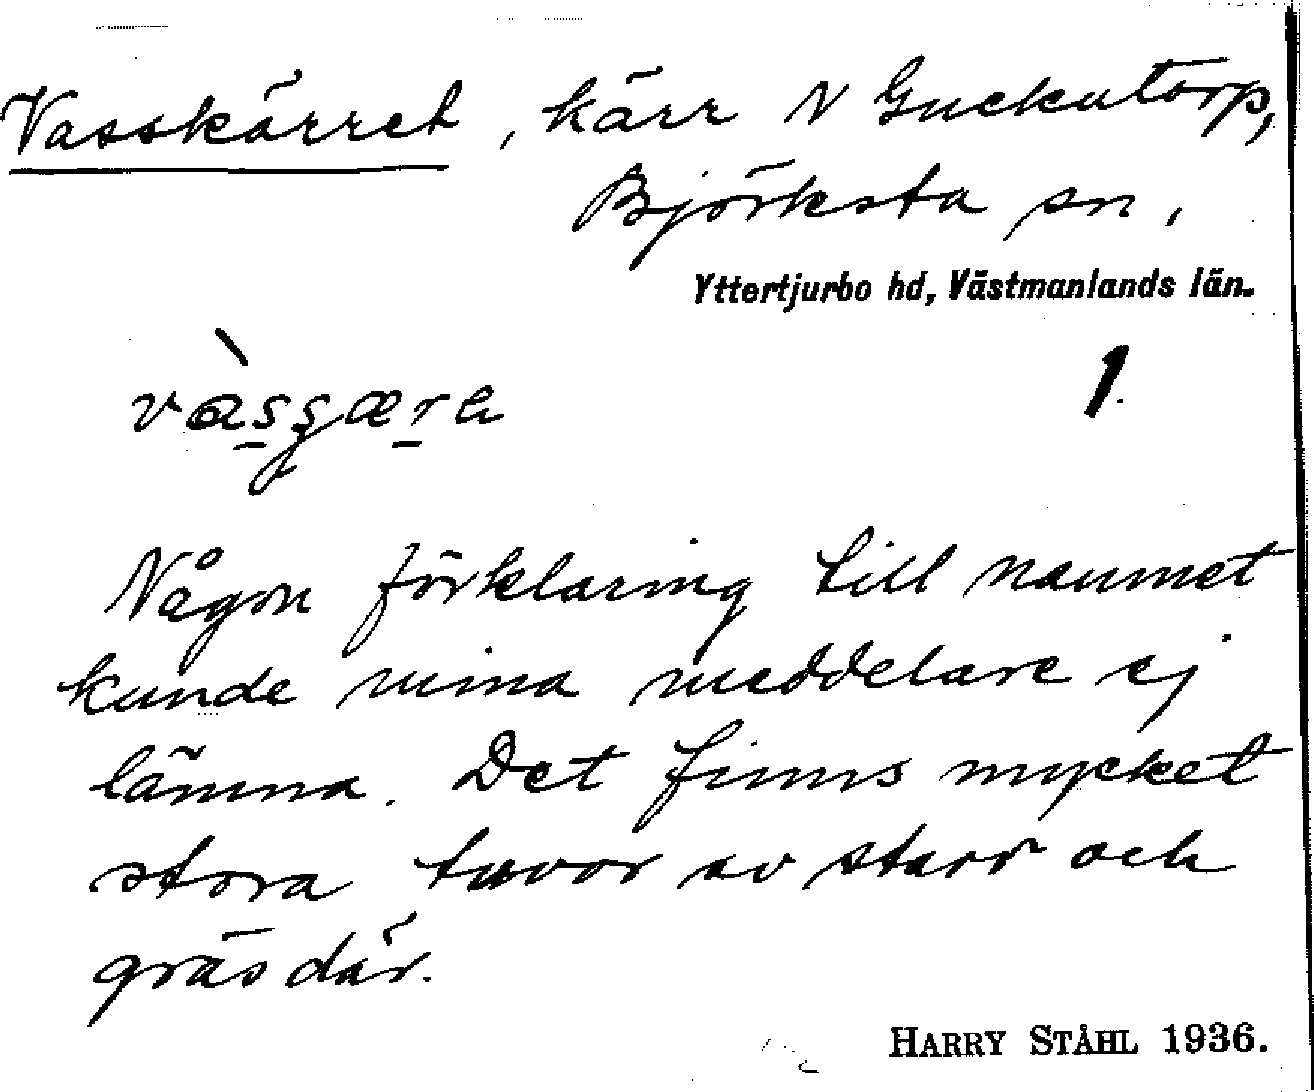 Vasskärret, kärr N Guckutorp,
Björksta sn,
Yttertjurbo hd, Västmanlands län.
1.
Någon förklaring till namnet
kunde mina meddelare ej
lämna. Det finns mycket
stora tuvor av starr och
gräs där.
HARRY STÅHL 1936.